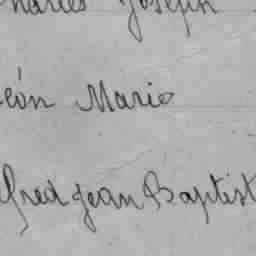 harles Joseph
éon Marie
lfred Jean Baptist